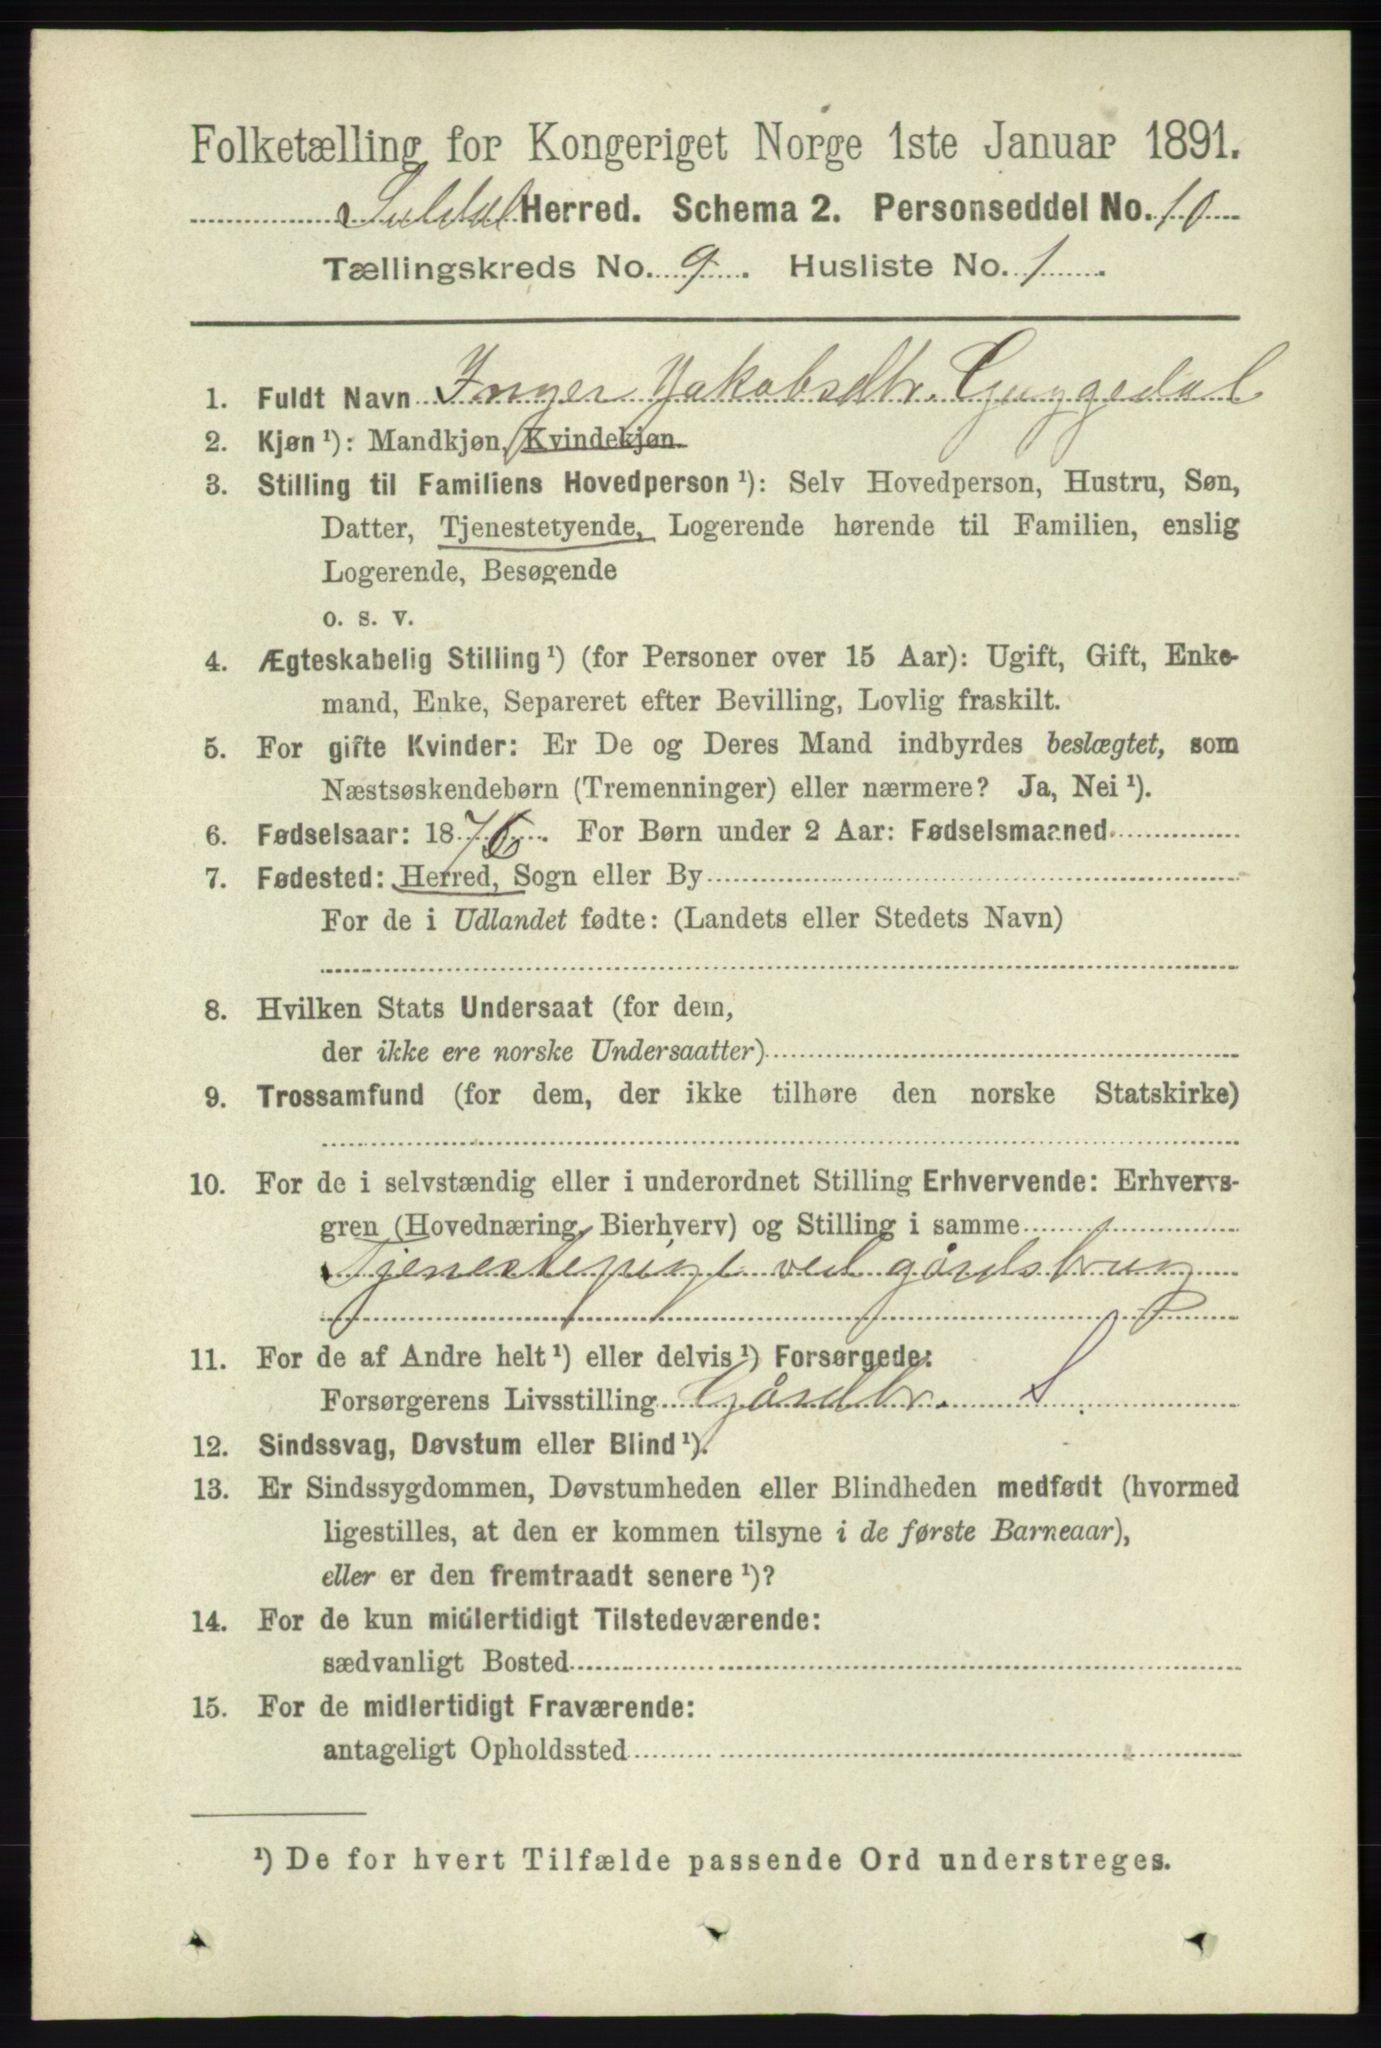 Folketælling for Kongeriget Norge 1ste Januar 1891.
Suldal Herred. Schema 2. Personseddel No. 10
Tællingskreds No. 9. Husliste No. 1
1. Fuldt Navn Inger Jakobsdtr. Guggedal
2. Kjøn ¹): Mandkjøn, Kvindekjøn.
3. Stilling til Familiens Hovedperson ¹): Selv Hovedperson, Hustru, Søn,
Datter, Tjenestetyende, Logerende hørende til Familien, enslig
Logerende, Besøgende
o. s. v.
4. Ægteskabelig Stilling ¹) (for Personer over 15 Aar): Ugift, Gift, Enke-
mand, Enke, Separeret efter Bevilling, Lovlig fraskilt.
5. For gifte Kvinder: Er De og Deres Mand indbyrdes beslægtet, som
Næstsøskendebørn (Tremenninger) eller nærmere? Ja, Nei ¹).
6. Fødselsaar: 1876. For Børn under 2 Aar: Fødselsmaaned
7. Fødested: Herred, Sogn eller By
For de i Udlandet fødte: (Landets eller Stedets Navn)
8. Hvilken Stats Undersaat (for dem,
der ikke ere norske Undersaatter)
9. Trossamfund (for dem, der ikke tilhøre den norske Statskirke)
10. For de i selvstændig eller i underordnet Stilling Erhvervende: Erhvervs-
gren (Hovednæring, Bierhverv) og Stilling i samme
Tjenestepige ved gårdsbrug
11. For de af Andre helt ¹) eller delvis ¹) Forsørgede:
Forsørgerens Livsstilling Gårdbr. S
12. Sindssvag, Døvstum eller Blind ¹).
13. Er Sindssygdommen, Døvstumheden eller Blindheden medfødt (hvormed
ligestilles, at den er kommen tilsyne i de første Barneaar),
eller er den fremtraadt senere ¹)?
14. For de kun midlertidigt Tilstedeværende:
sædvanligt Bosted
15. For de midlertidigt Fraværende:
antageligt Opholdssted
¹) De for hvert Tilfælde passende Ord understreges.